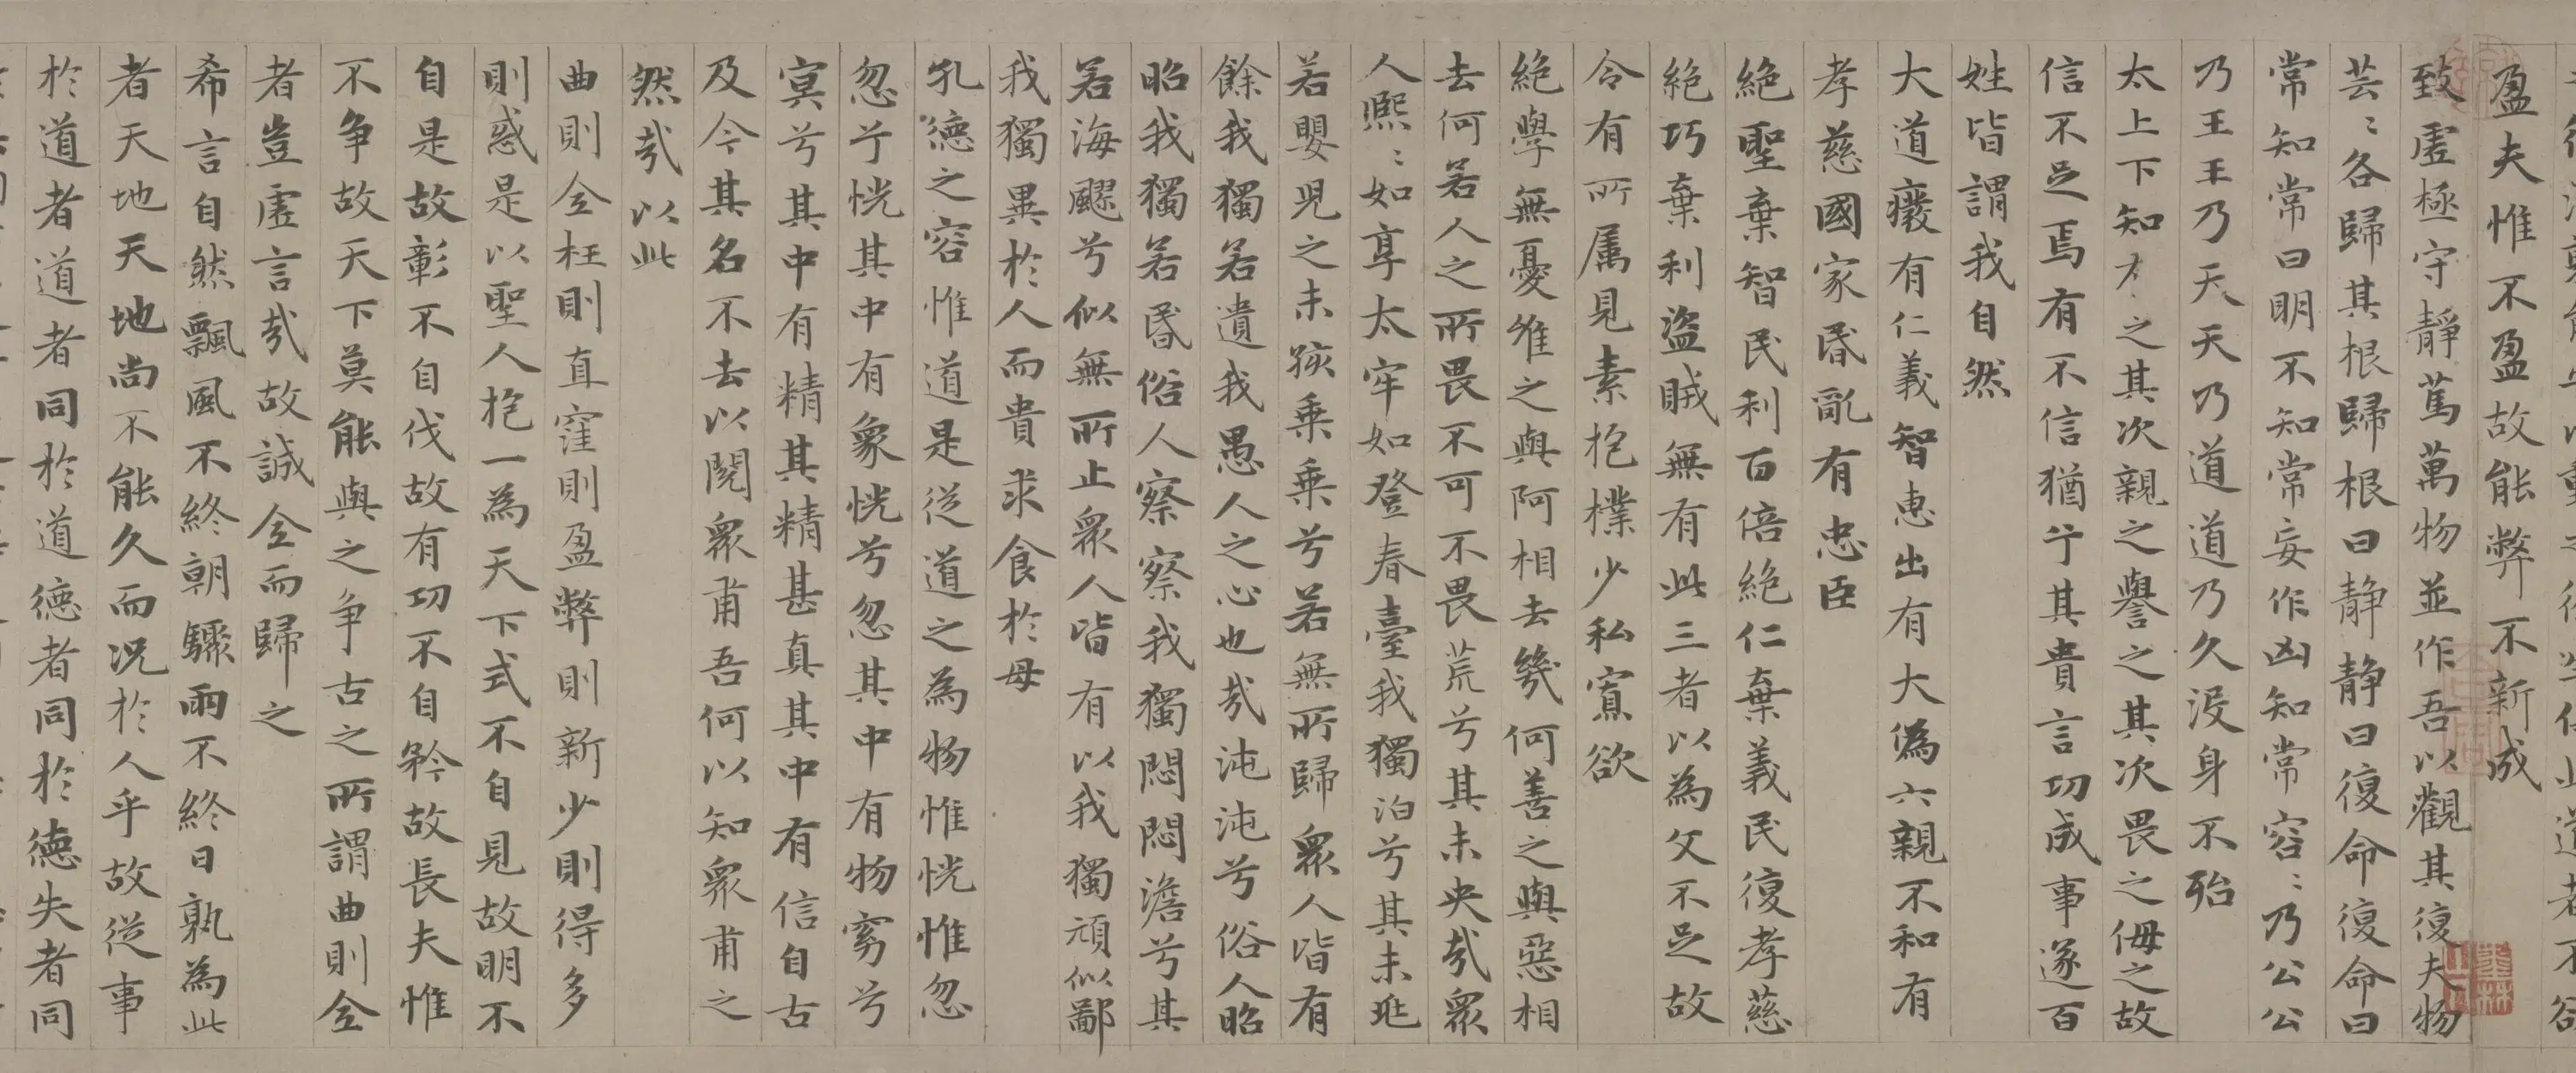 盈夫惟不盈故能弊不新成
致虛極守靜篤萬物並作吾以觀其復夫物
芸〻各歸其根歸根曰靜靜曰復命復命曰
常知常曰明不知常妄作凶知常容〻乃公公
乃王王乃天天乃道道乃久沒身不殆
太上下知有之其次親之譽之其次畏之侮之故
信不足焉有不信猶兮其貴言功成事遂百
姓皆謂我自然
大道癈有仁義智惠出有大偽六親不和有
孝慈國家昏亂有忠臣
絕聖棄智民利百倍絕仁棄義民復孝慈
絕巧棄利盜賊無有此三者以為文不足故
令有所属見素抱樸少私寡欲
絕學無憂唯之與阿相去幾何善之與惡相
去何若人之所畏不可不畏荒兮其未央哉眾
人熈〻如享太牢如登春臺我獨泊兮其未兆
若嬰兒之未孩乗乗兮若無所歸眾人皆有
餘我獨若遺我愚人之心也哉沌沌兮俗人昭
昭我獨若昏俗人察察我獨悶悶澹兮其
若海飂兮似無所止眾人皆有以我獨頑似鄙
我獨異於人而貴求食於母
孔德之容惟道是從道之為物惟恍惟忽
忽兮恍其中有象恍兮忽其中有物窈兮
冥兮其中有精其精甚真其中有信自古
及今其名不去以閱眾甫吾何以知眾甫之
然哉以此
曲則全枉則直窪則盈弊則新少則得多
則惑是以聖人抱一為天下式不自見故明不
自是故彰不自伐故有功不自矜故長夫惟
不争故天下莫能與之争古之所謂曲則全
者豈虛言哉故誠全而歸之
希言自然飄風不終朝驟雨不終日孰為此
者天地天地尚不能久而況於人乎故從事
於道者道者同於道德者同於德失者同